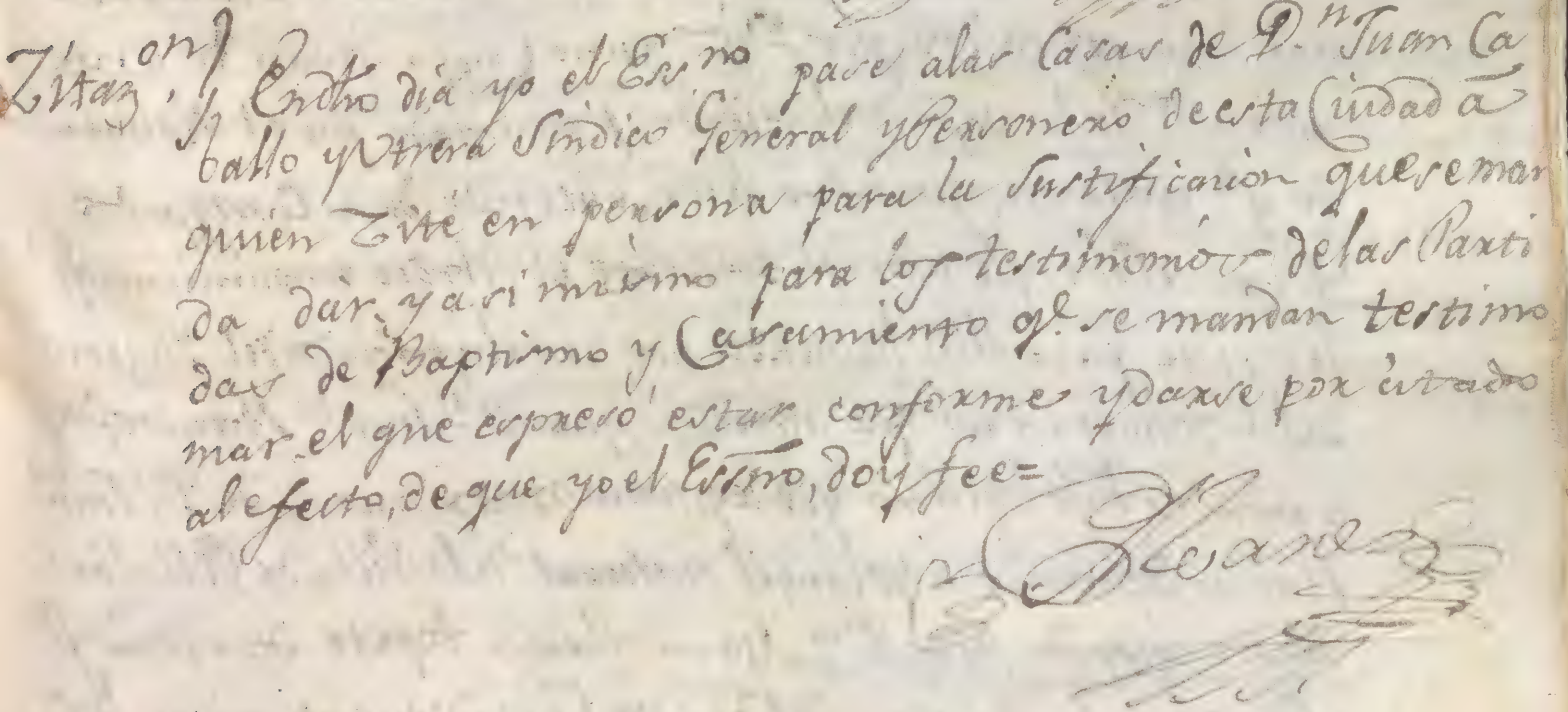 Zitaz.on) Endho dia yo el Essno pase alas Casas de D.n Juan Ca
ballo y Utrera Sindico General y Personero de esta Ciudad â
quien Zité en persona para la Justificacion que se man
da dár, y asi mismo para los testimonios de las Parti
das de Baptismo y Casamiento q.e se mandan testimo
niar, el que espresó estar conforme y darse por citado
al efecto, de que yo el Essno, doy fee=
Alvarez